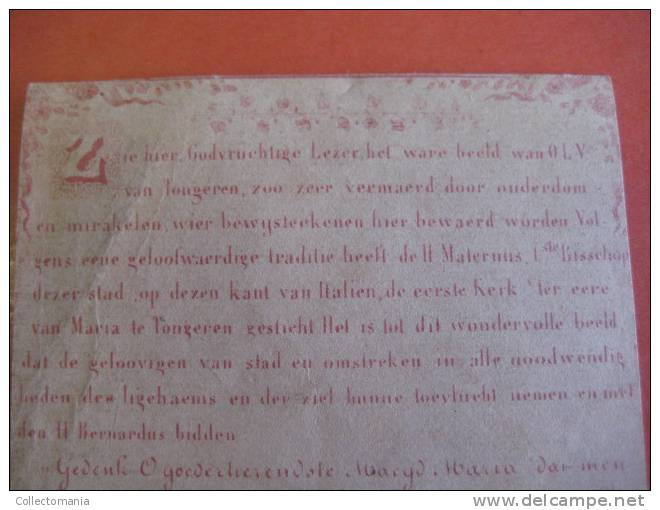 Zie hier, Godvruchtige Lezer, het ware beeld van O L V
van Tongeren, zoo zeer vermaerd door ouderdom
en mirakelen, wier bewysteekenen hier bewaerd worden Vol-
gens eene geloofwaerdige traditie heeft de H Maternus, 1ste Bisschop
dezer stad, op dezen kant van Italien, de eerste Kerk ter eere
van Maria te Tongeren gesticht Het is tot dit wondervolle beeld,
dat de geloovigen van stad en omstreken in alle noodwendig
heden des ligchaems en der ziel hunne toevlucht nemen en met
den H Bernardus bidden
"Gedenk O goedertierendste Maegd Maria dat men
Collectomania
www.delcampe.net